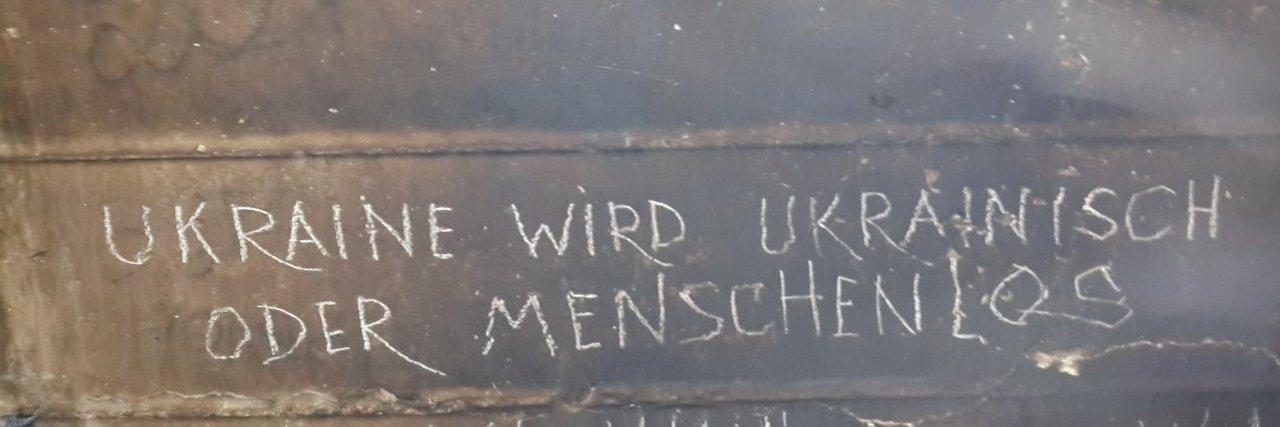 UKRAINE WIRD UKRAINISCH
ODER MENSCHENLOS